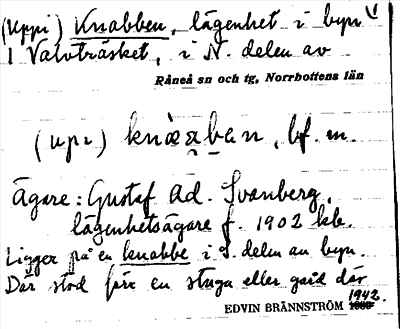 (Uppi) Knabben, lägenhet i byn
1 Valvträsket, i N. delen av
Råneå sn och tg, Norrbottens län
(upı) knàab̥an, bf. m.
Ägare: Gustaf Ad. Svanberg,
lägenhetsägare f. 1902 kb.
Ligger på en knabbe i S. delen av byn.
Där stod förr en stuga eller gård där
1942.
EDVIN BRÄNNSTRÖM